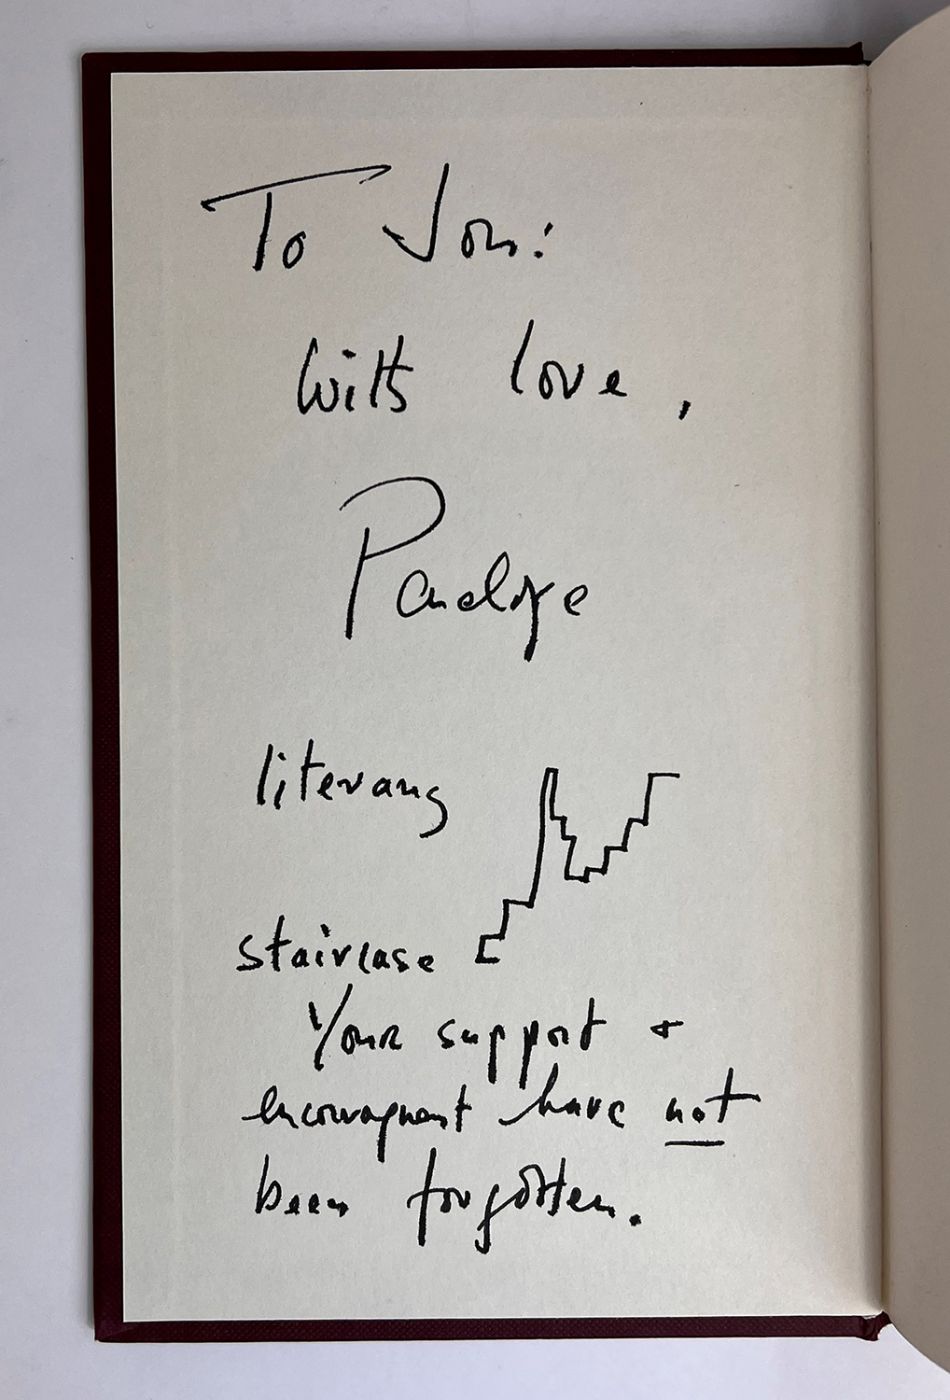 To Jon:
With love,
Penelope
literary
staircase
Your support +
encouragement have not
been forgotten.